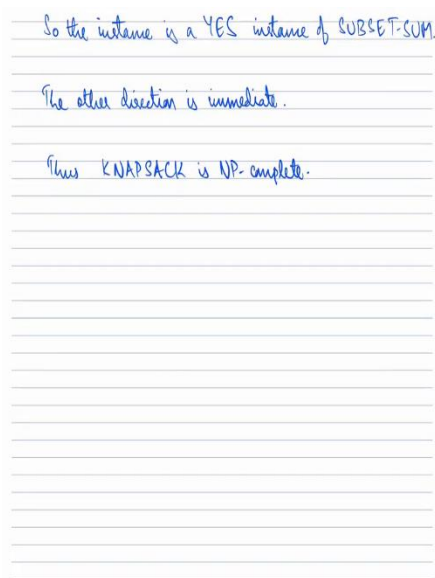 So the instance is a YES instance of SUBSET-SUM.
The other direction is immediate.
Thus KNAPSACK is NP-complete.